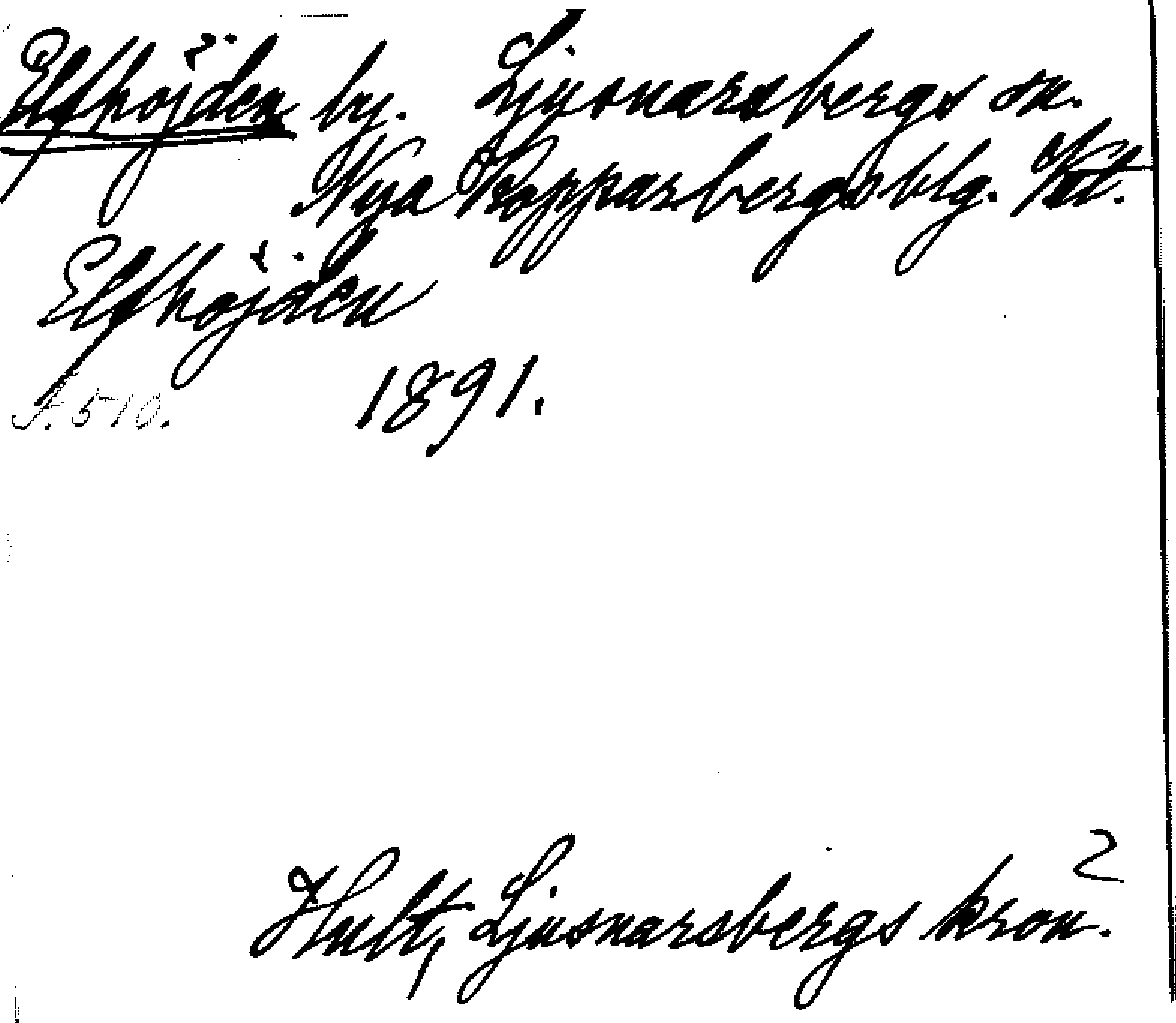 Elfhöjden by. Ljusnarsbergs sn.
Nya Kopparbergs blg. Vstl.
Elfhöjden
1891.
S. 510.
2
Hult, Ljusnarsbergs krön.